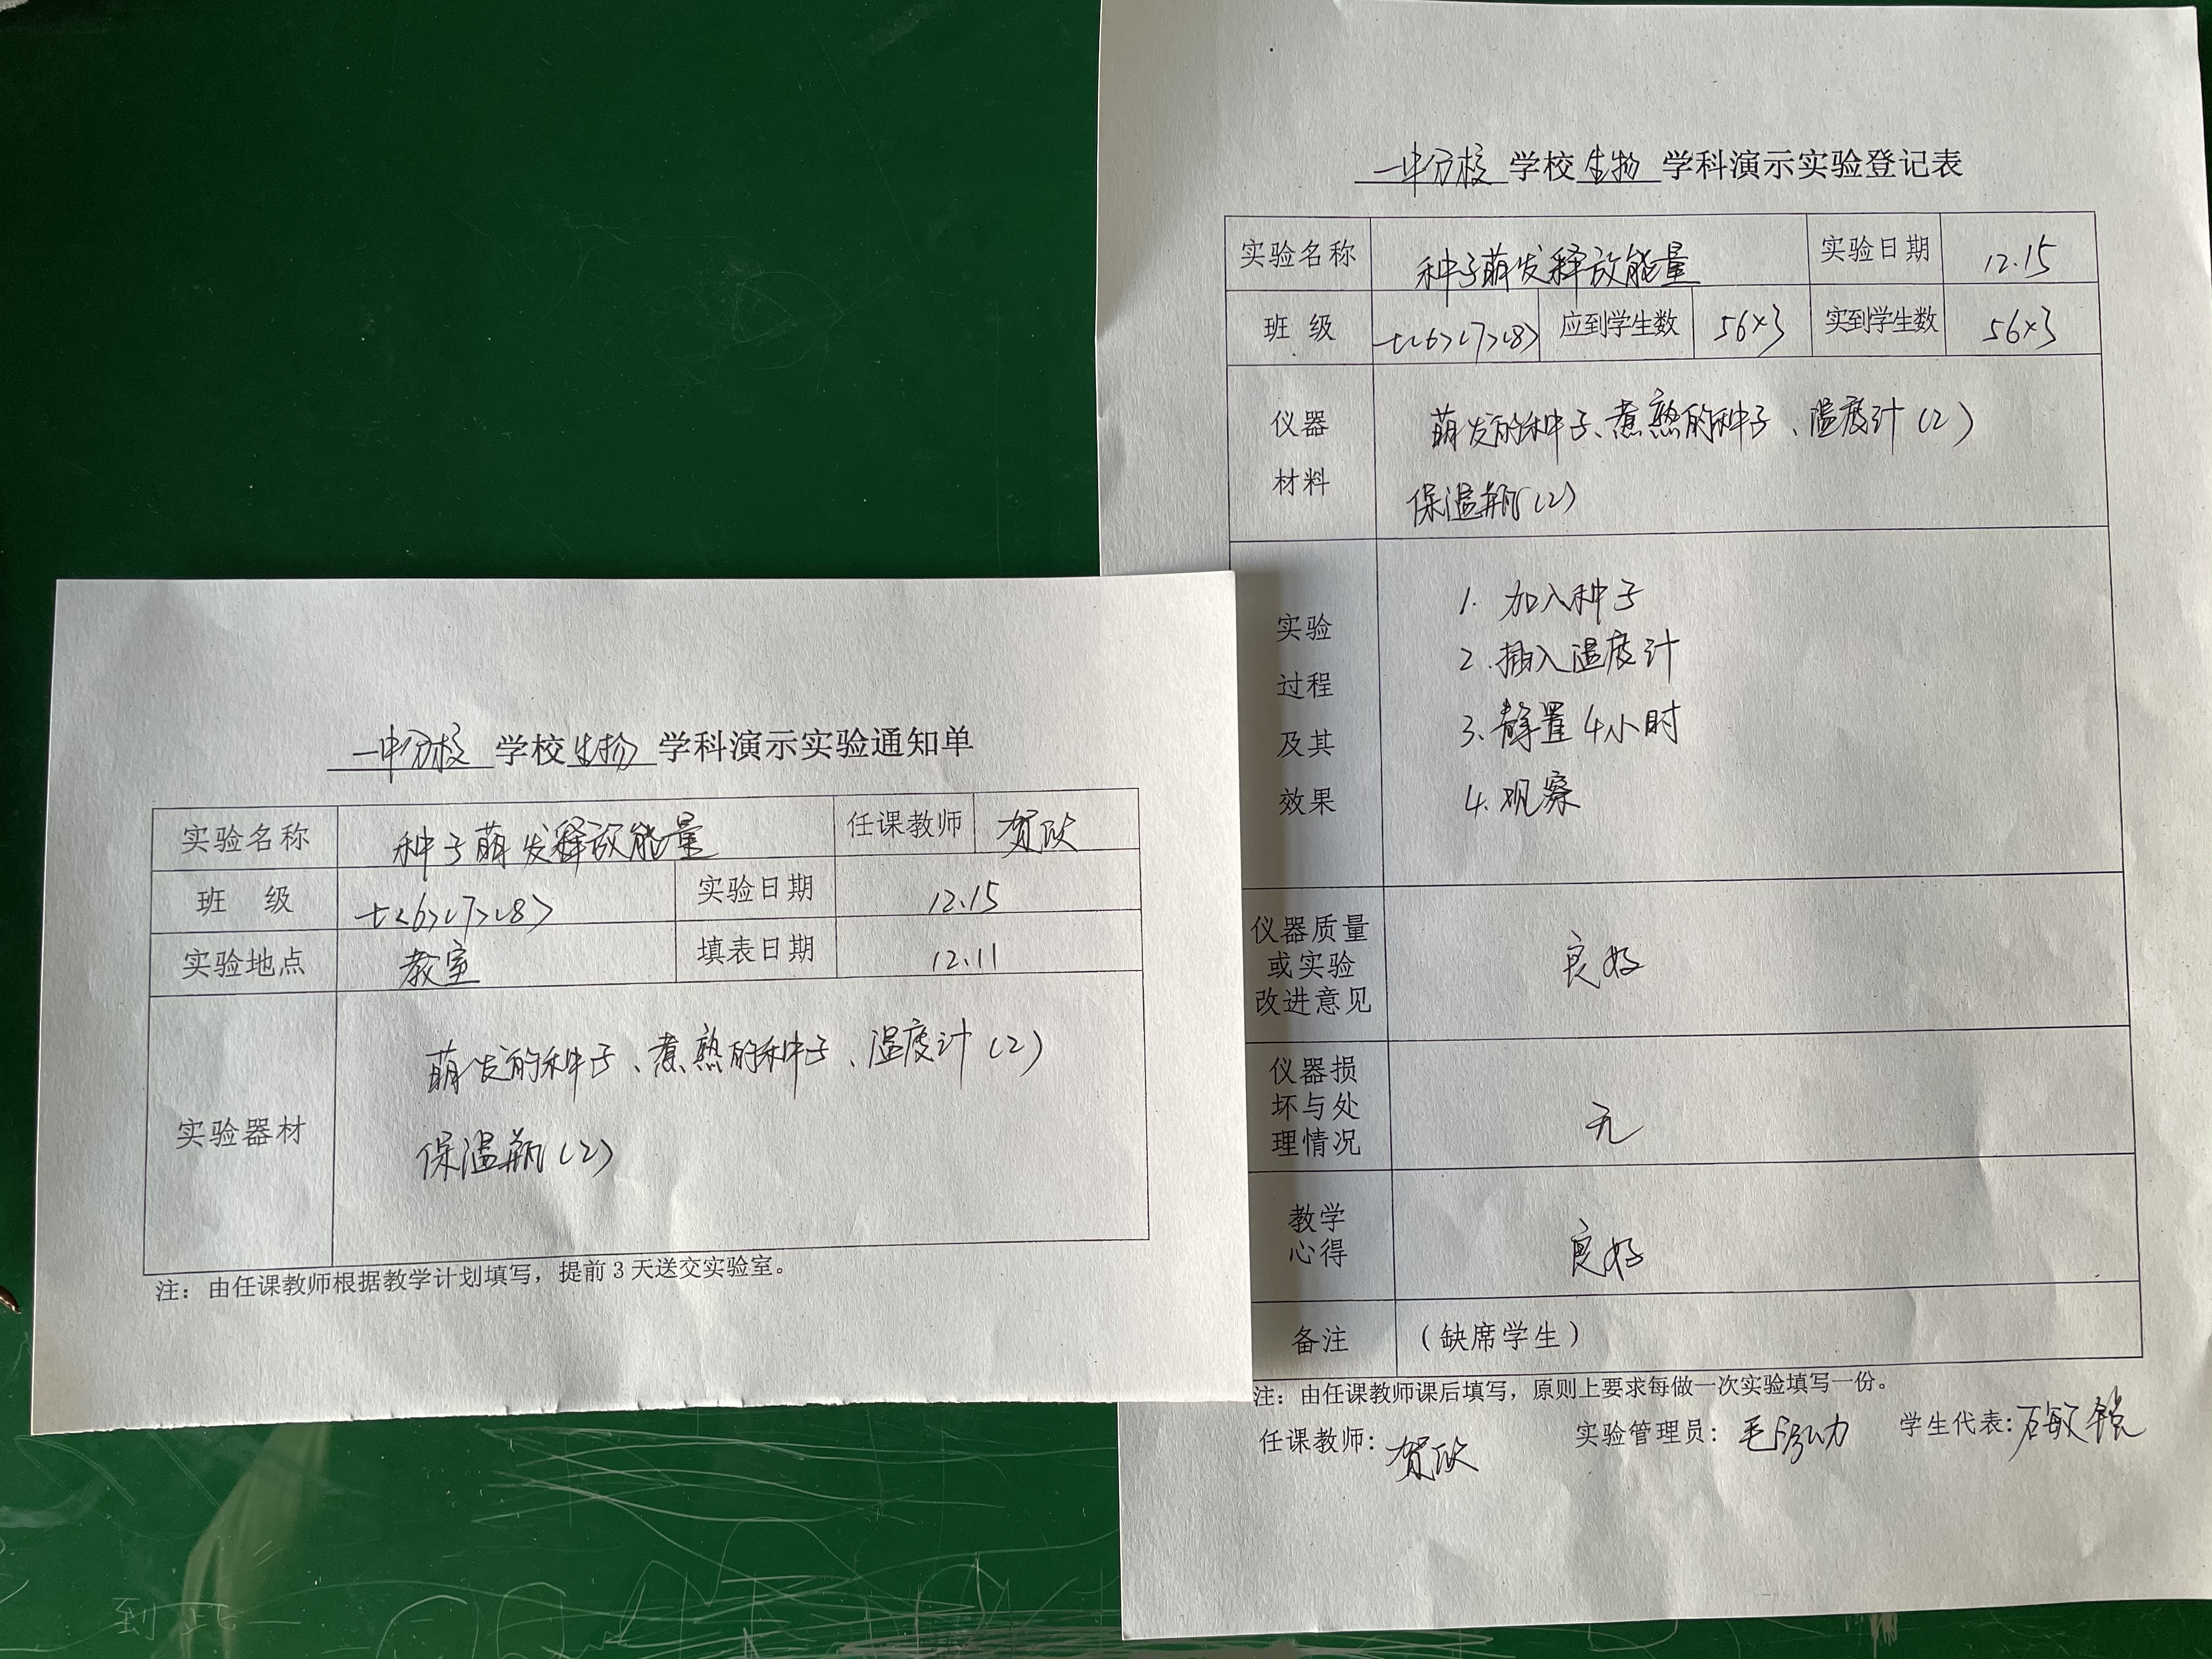 一中分校 学校 生物 学科演示实验通知单
实验名称 种子萌发释放能量 任课教师 贺欣
班 级 七<6><7><8> 实验日期 12.15
实验地点 教室 填表日期 12.11
实验器材 萌发的种子、煮熟的种子、温度计(2)
保温瓶(2)
注：由任课教师根据教学计划填写，提前3天送交实验室。
一中分校 学校 生物 学科演示实验登记表
实验名称 种子萌发释放能量 实验日期 12.15
班 级 七<6><7><8> 应到学生数 56×3 实到学生数 56×3
仪器
材料
萌发的种子、煮熟的种子、温度计(2)
保温瓶(2)
实验
过程
及其
效果
1. 加入种子
2. 插入温度计
3. 静置4小时
4. 观察
仪器质量
或实验
改进意见
良好
仪器损
坏与处
理情况
无
教学
心得
良好
备注 （缺席学生）
注：由任课教师课后填写，原则上要求每做一次实验填写一份。
任课教师：贺欣 实验管理员： 学生代表：
到此